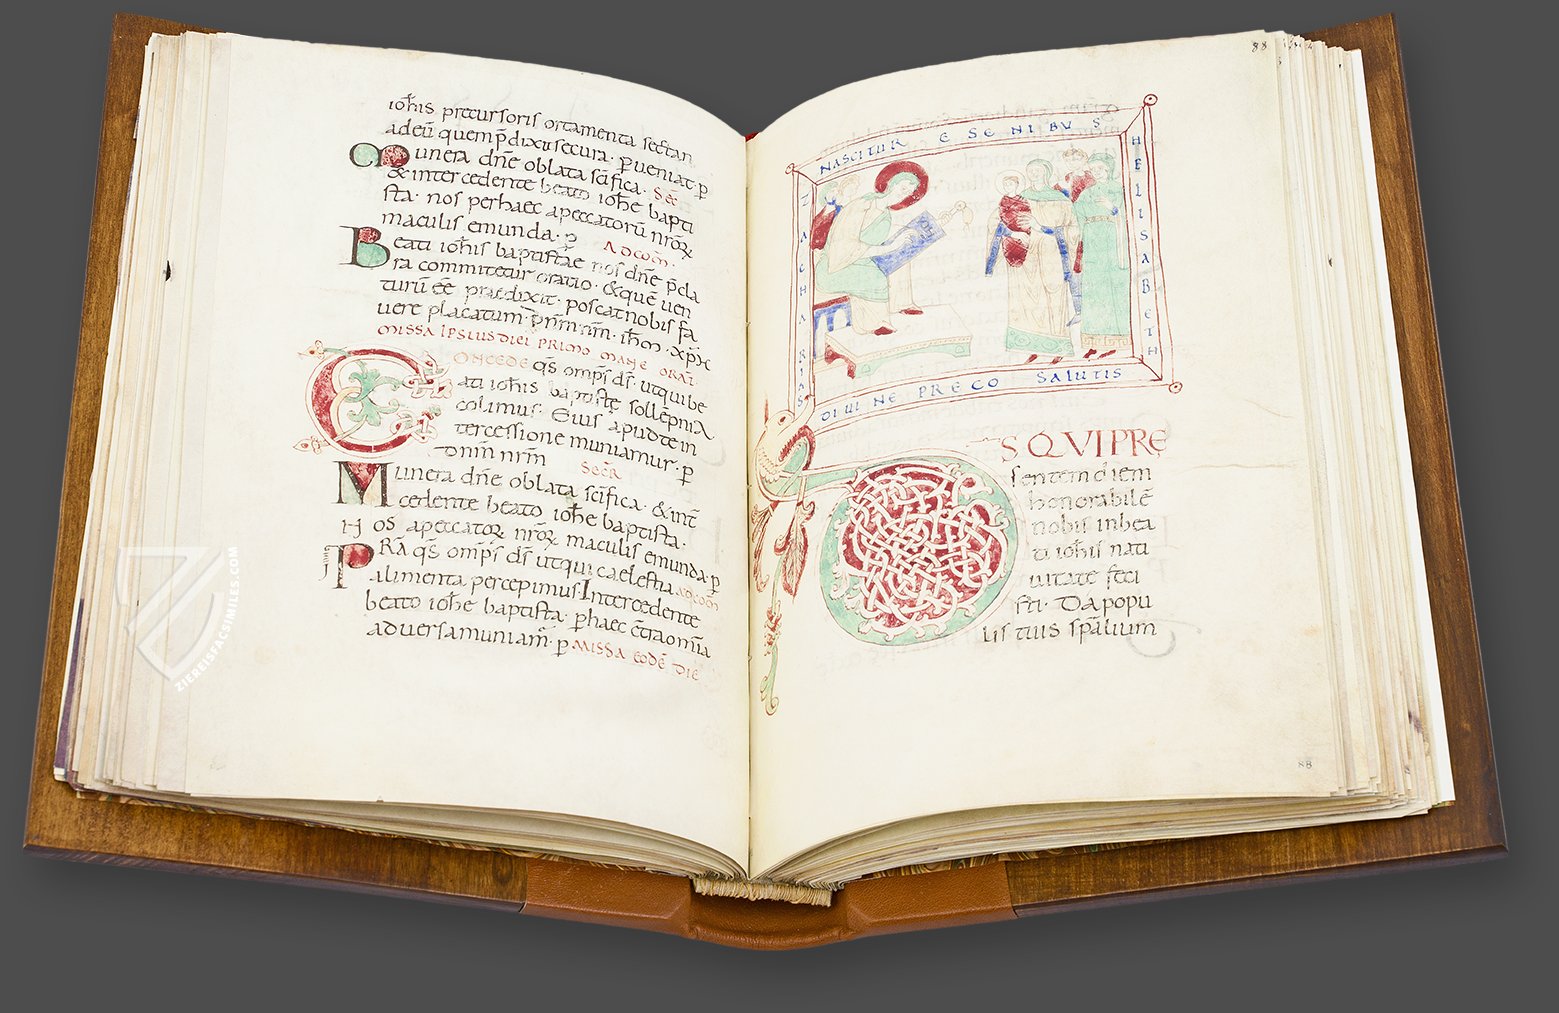 ioh̄is precursoris ortamenta sectan
adeū quem p̄dixit secura · pueniat · p
Munera dn̄e oblata sc̄ifica · SEC̄
& intercedente beato ioh̄e bapti
sta · nos perhaec apeccatorū nr̄oꝝ
maculis emunda · ADCOM̄·
Beati ioh̄is baptistae nos dn̄e p̄cla
ra commitetur oratio · & quē uen
turū eē praedixit · poscat nobis fa
uere placatum dn̄m nr̄m · ih̄m · xp̄m
MISSA IPSIUS DIEI PRIMO MANE ORAT̄
CONCEDE qs̄ omps̄ ds̄ · ut qui be
ati ioh̄is baptistę sollēpnia
colimus · Eius apud te in
tercessione muniamur · p
dnm̄ nr̄m SECR̄
Munera dn̄e oblata sc̄ifica · & int̄
cedente beato ioh̄e baptista ·
Nos apeccatoꝝ nr̄oꝝ maculis emunda · p
PRA qs̄ omps̄ ds̄ ut qui caelestia ADCOM̄
alimenta percepimus Intercedente
beato ioh̄e baptista · p haec c̄tra om̄ia
aduersa muniam̄ · p MISSA EODĒ DIE
88
NASCITUR E SENIBUS
ZACHARIAS
HELISABETH
DIUINE PRECO SALUTIS
DS QVI PRE
sentem diem
honorabilē
nobis in bea
ti ioh̄is nati
uitate feci
sti · Da popu
lis tuis sp̄alium
88
ZIEREISFACSIMILES.COM